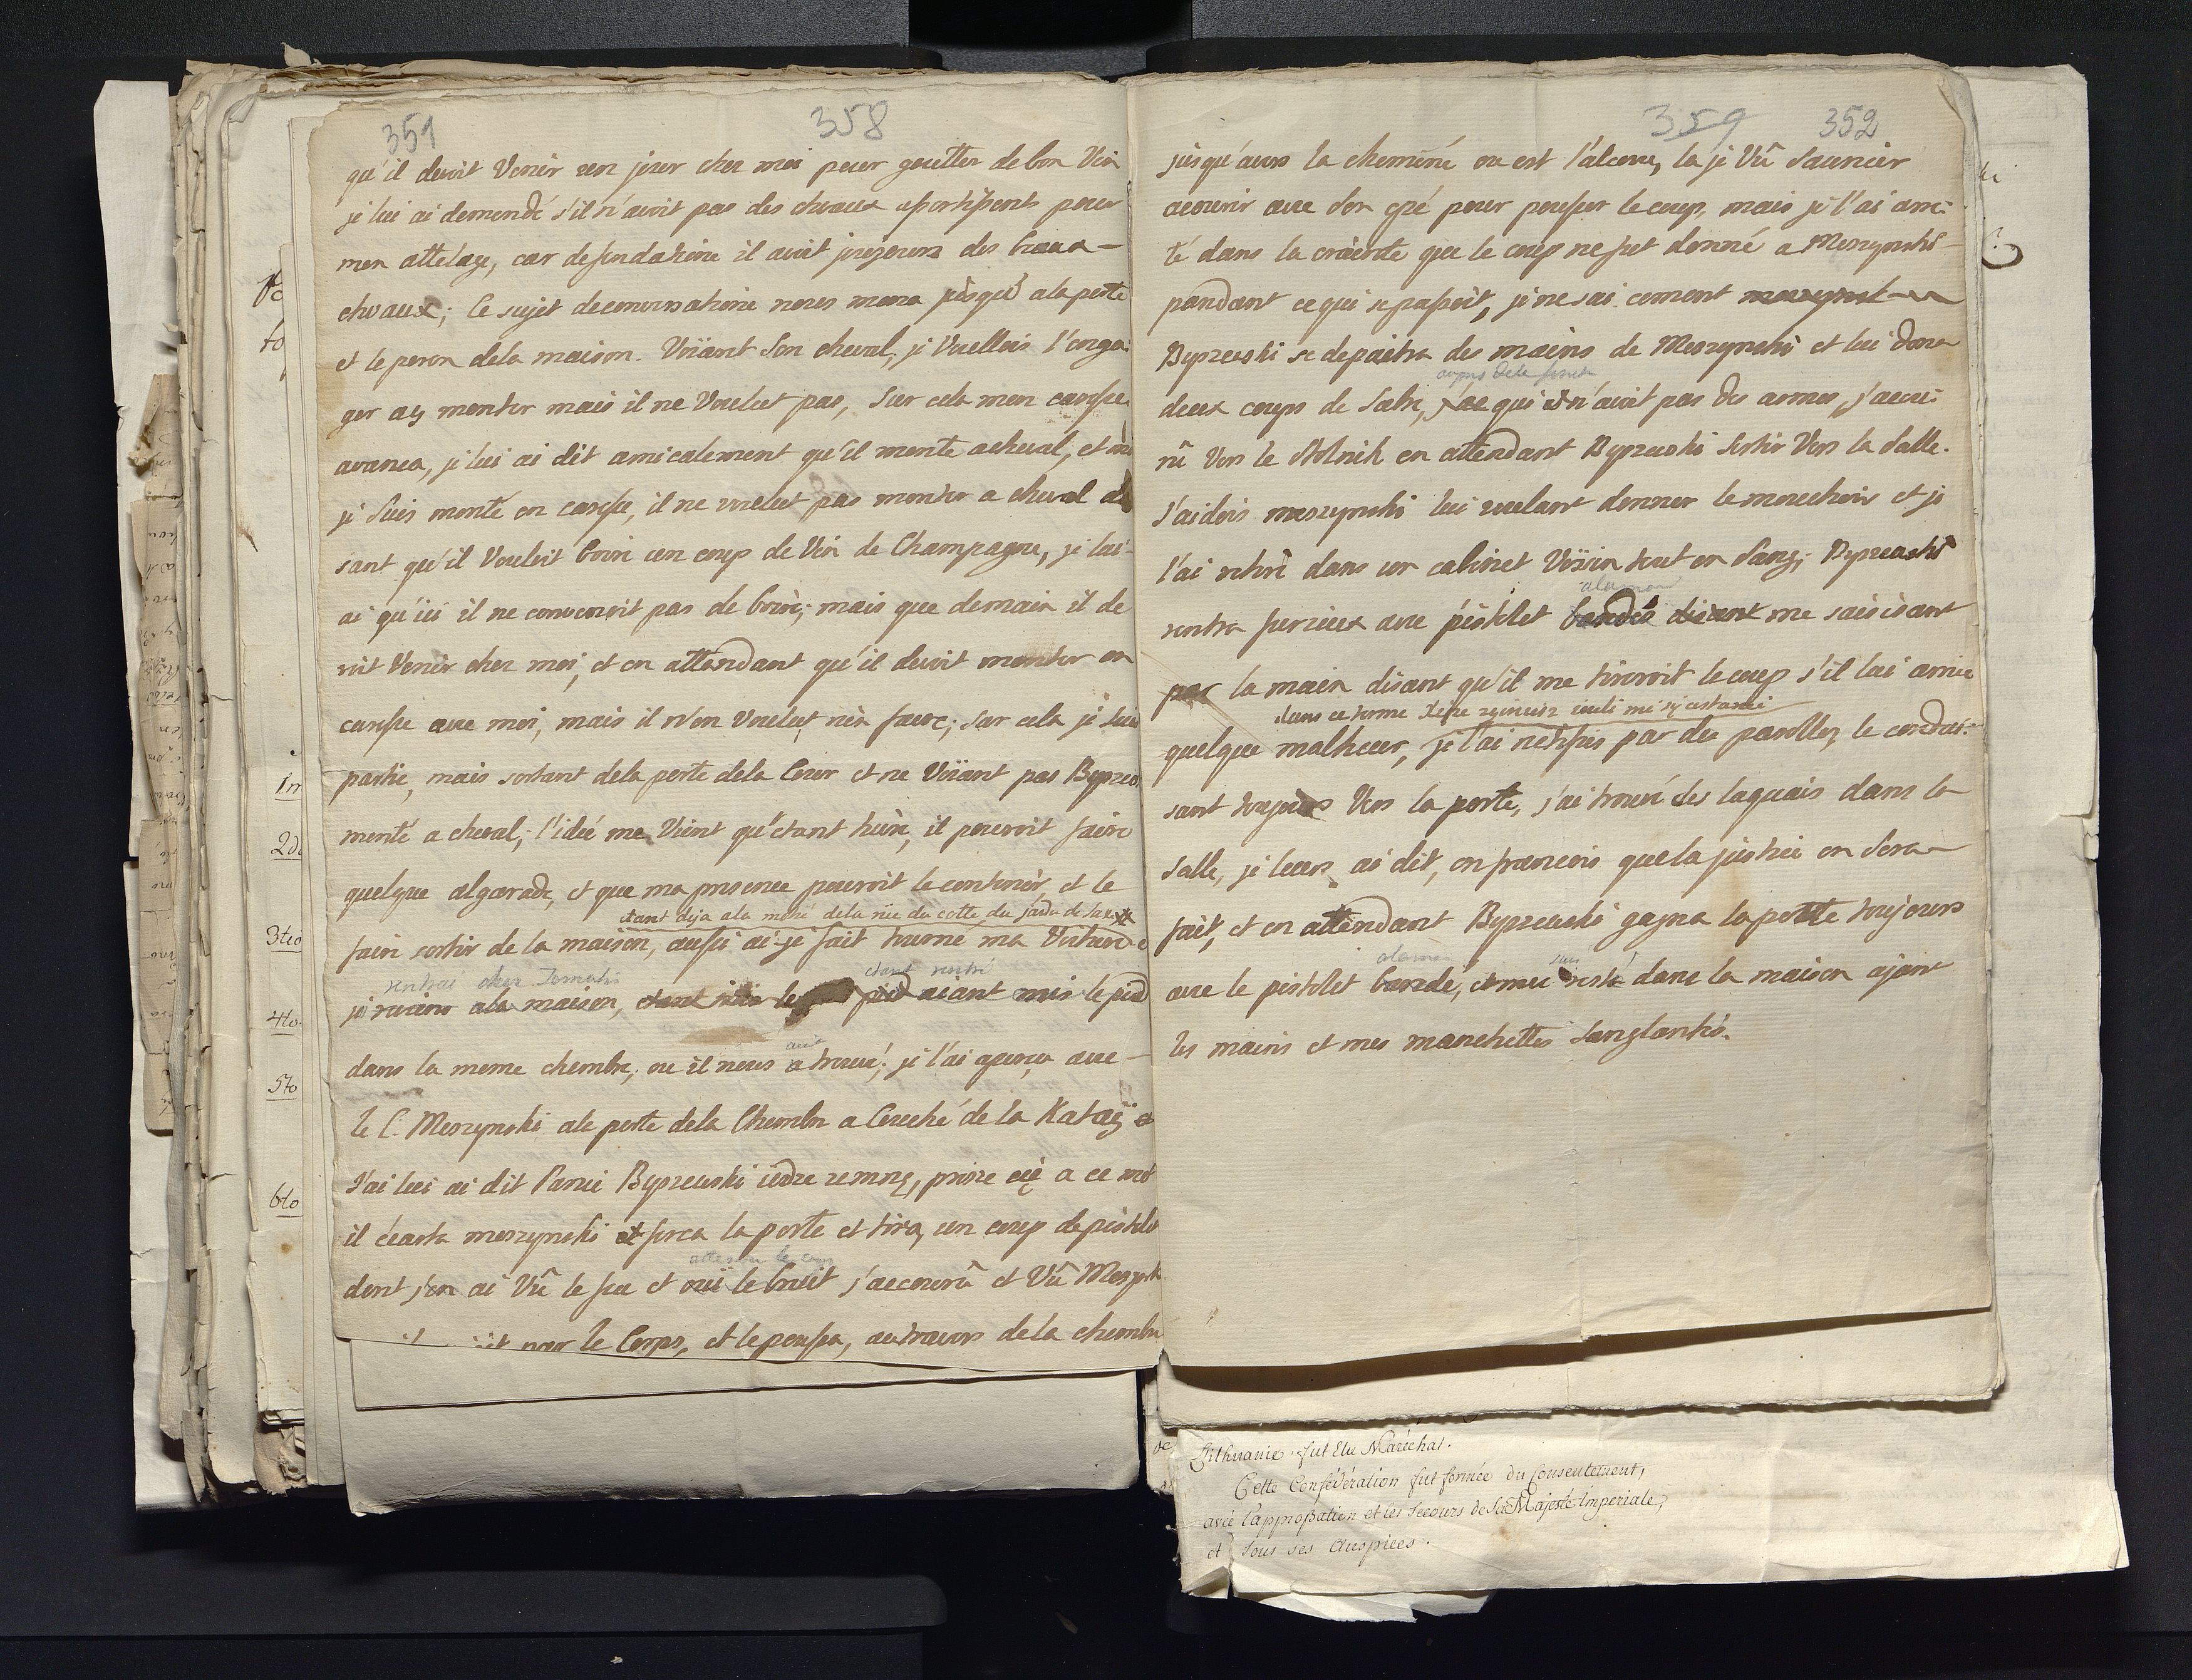 351 358
qu'il devoit Venir un jour chez moi pour goutter de bon Vin
je lui ai demendé s'il n'avoit pas des chevaux apartissents pour
mon attelage, car de fondatione il avoit toujours des beaux
chevaux; Ce sujet de conversatione nous mena jusqu'a la porte
et le peron de la maison. Voiant Son cheval, je Voullois l'enga
ger a y monter mais il ne Voulut pas, Sur cela mon carosse
avanca, je lui ai dit amicalement qu'il monte a cheval, et moi
je Suis monté en carosse, il ne voulut pas monter a cheval di
sant qu'il Vouloit boire un coup de Vin de Champagne, je lui
ai qu'ici il ne convenoit pas de boire; mais que demain il de
voit Venir chez moi, et en attendant qu'il devoit monter en
carosse avec moi, mais il n'en Voulut rien faire; sur cela je suis
partie, mais sortant de la porte de la Cour et ne Voiant pas Byszew
monté a cheval; l'idée me Vient qu'etant ivre, il pouroit faire
quelque algarade, et que ma presence pouroit le contenir, et le
etant deja a la moitié de la rüe du cotté du jardin de Saxe
faire sortir de la maison, aussi ai-je fait turné ma Voiture
rentrai chez Tomatis etant rentré
je reviens a la maison, le pied aiant mis le pied
avoit
dans la meme chembre, ou il nous a trouvé; je l'ai aperçu avec
le C. Moszynski a la porte de la Chembre a Couché de la Kataÿ et
J'ai lui ai dit Panie Byszewski idze zemną, prosze cię a ce mot
il écarta moszynski et força la porte et tira, un coup de pistolet
dont j'en ai Vû le feu et ouï le bruit j'accourû et Vû Moszynsk
par le Corps, et le poussa, autravers de la chembre
359 352
jusqu'auprs la cheminé ou est l'alcove, la je Vû Saunier
acourir avec Son epé pour pousser le coup, mais je l'ai arre
té dans la crainte que le coup ne fut donné a Moszynski
pandant ce qui se passoit, je ne sai coment
Byszewski se depaitra des mains de Moszynski et lui dona
deux coups de Sabre, qui n'avoit pas des armes, j'accou
rû Vers le Stolnik en attendant Byszewski Sortir Vers la Salle.
J'aidois moszynski lui voulant donner le mouchoir et je
l'ai retiré dans un cabinet Voisin tout en Sang, Byszewski
rentra furieux avec pistolet bandés disant me saisisant
par la main disant qu'il me tireroit le coup s'il lui arrive
quelque malheur, je l'ai par des parolles, le condui
sant toujours Vers la porte, j'ai trouvé des laquais dans la
Salle, je leurs ai dit, en francois que la justice en Sera
fait, et en attendant Byszewski gagna la porte toujours
avec le pistolet bandé, et moi resté dans la maison ajant
les mains et mes manchettes Sanglantés.
Lithuanie fut Elu Maréchal.
Cette Confédération fut formée du Consentement,
avec l'approbation et les Secours de Sa Majesté Imperiale,
et Sous ses Auspices.
1m
2do
3tio
4to
5to
6to